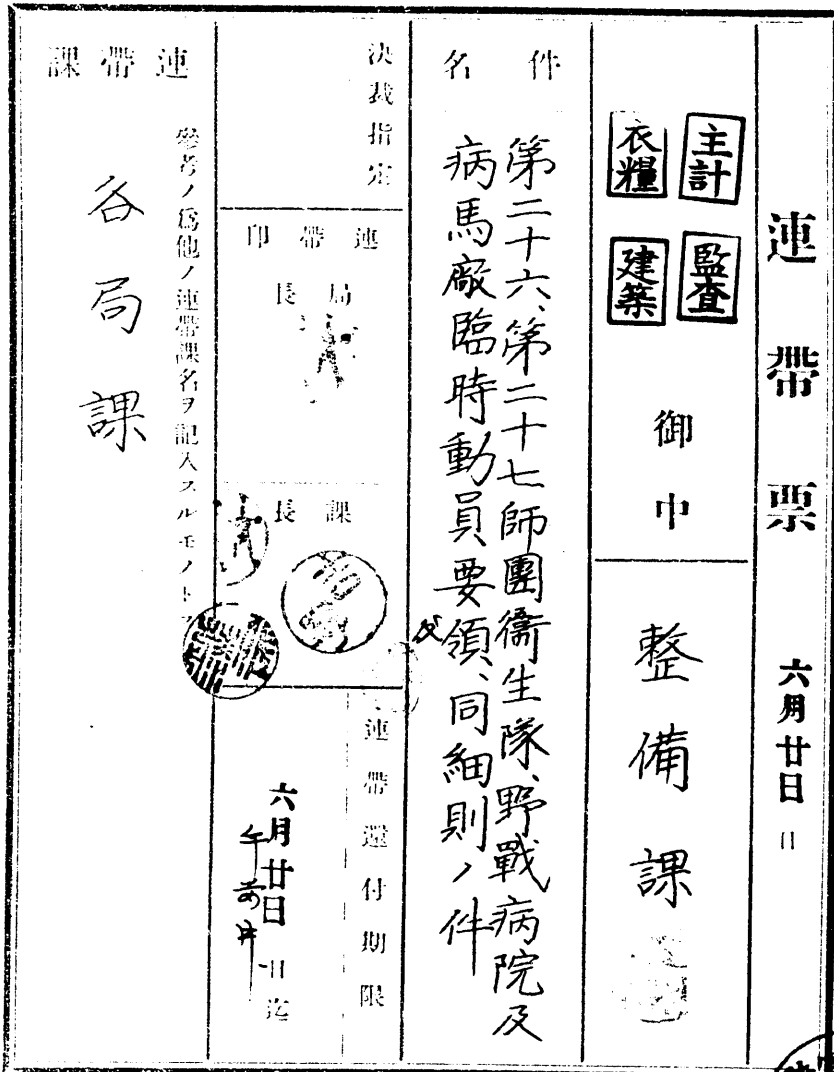 連帶票
六月廿日
日
主計
監査
衣糧
建築
御中
整備課
件名
第二十六、第二十七師團衞生隊、野戰病院及
病馬廠臨時動員要領、同細則ノ件
及
決裁指定
連帶印
局長
課長
連帶還付期限
六月廿日
日迄
午前中
連帶課
參考ノ爲他ノ連帶課名ヲ記入スルモノトス
各局課